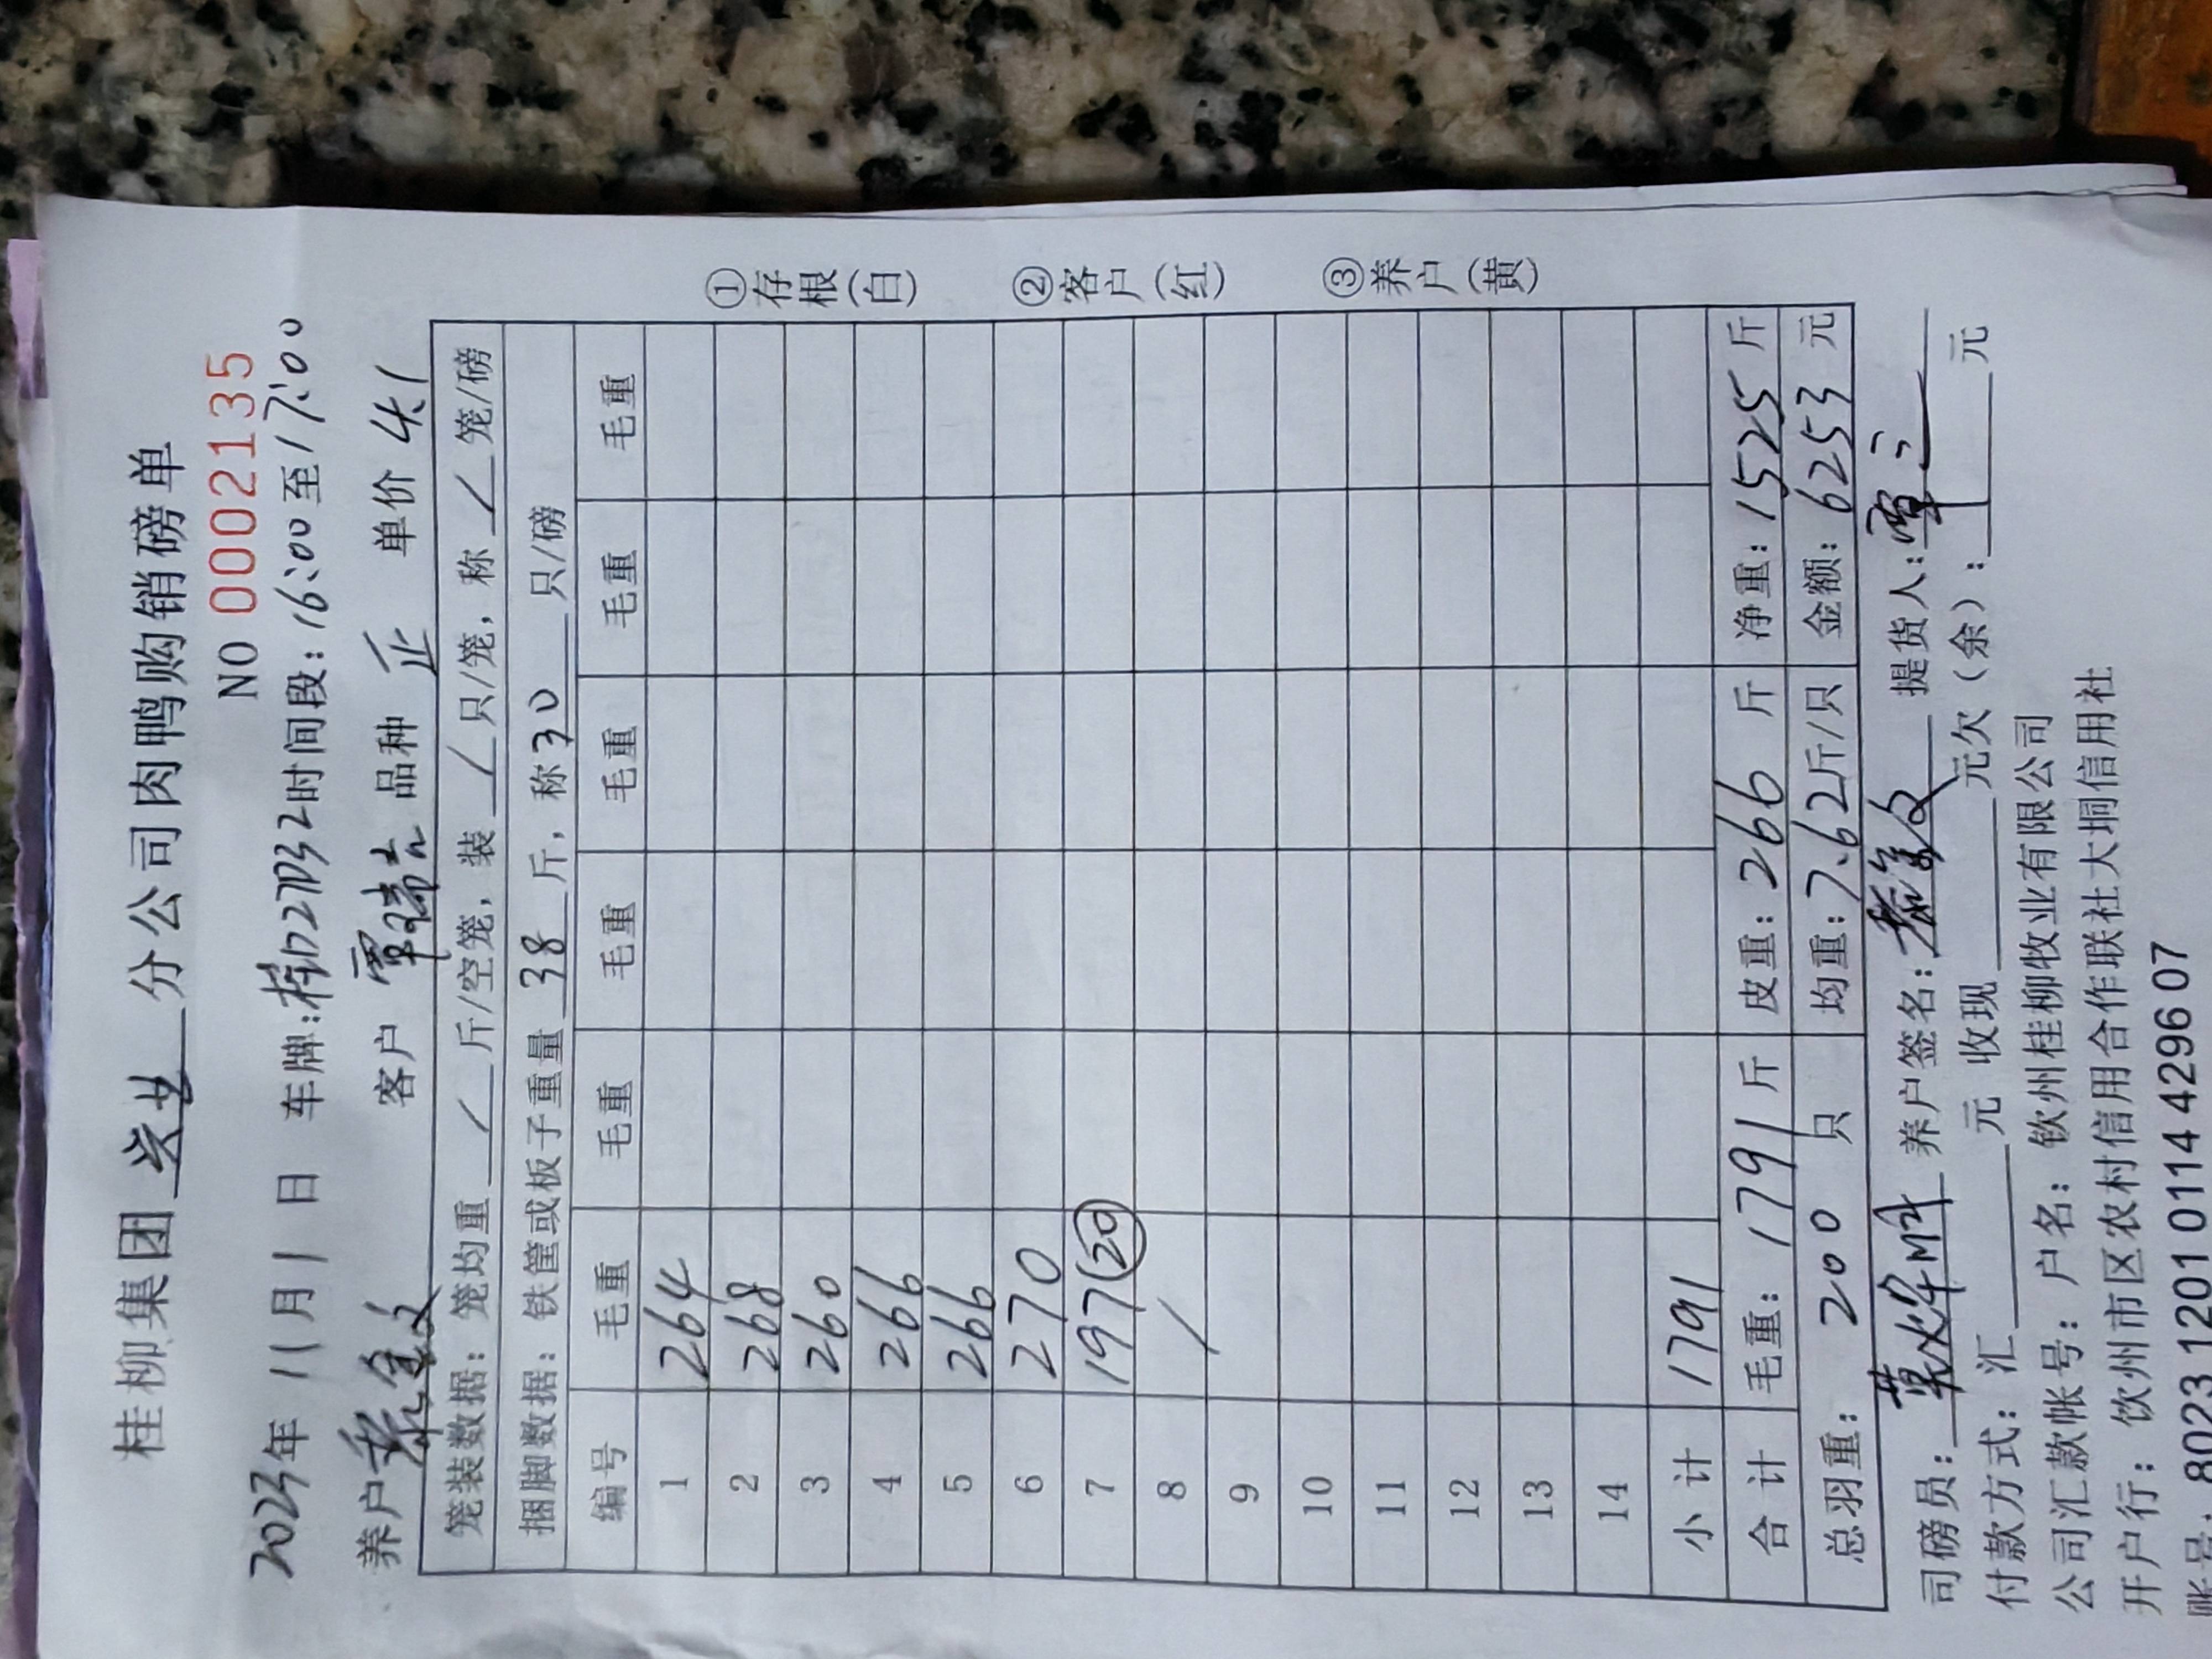 桂柳集团 分公司肉鸭购销磅单
NO 0002135
2023年 11月1日 车牌:桂D27132时间段:16:00至17:00
养户 客户 覃瑞吉 品种 正 单价 4.1
笼装数据:笼均重 / 斤/空笼,装 / 只/笼,称 / 笼/磅
捆脚数据:铁筐或板子重量 38 斤,称 30 只/磅
编号 毛重 毛重 毛重 毛重 毛重 毛重
1 264
2 268
3 260
4 266
5 266
6 270
7 197(20)
8 /
9
10
11
12
13
14
小计 1791
合计 毛重:1791斤 皮重:266 斤 净重:1525 斤
总羽重: 200 只 均重:7.62斤/只 金额:6253 元
司磅员: 养户签名: 提货人:覃
付款方式:汇 元 收现 元欠(余): 元
公司汇款帐号:户名:钦州桂柳牧业有限公司
开户行:钦州市区农村信用合作联社大垌信用社
账号:8023 1201 0114 4296 07
①存根(白) ②客户(红) ③养户(黄)